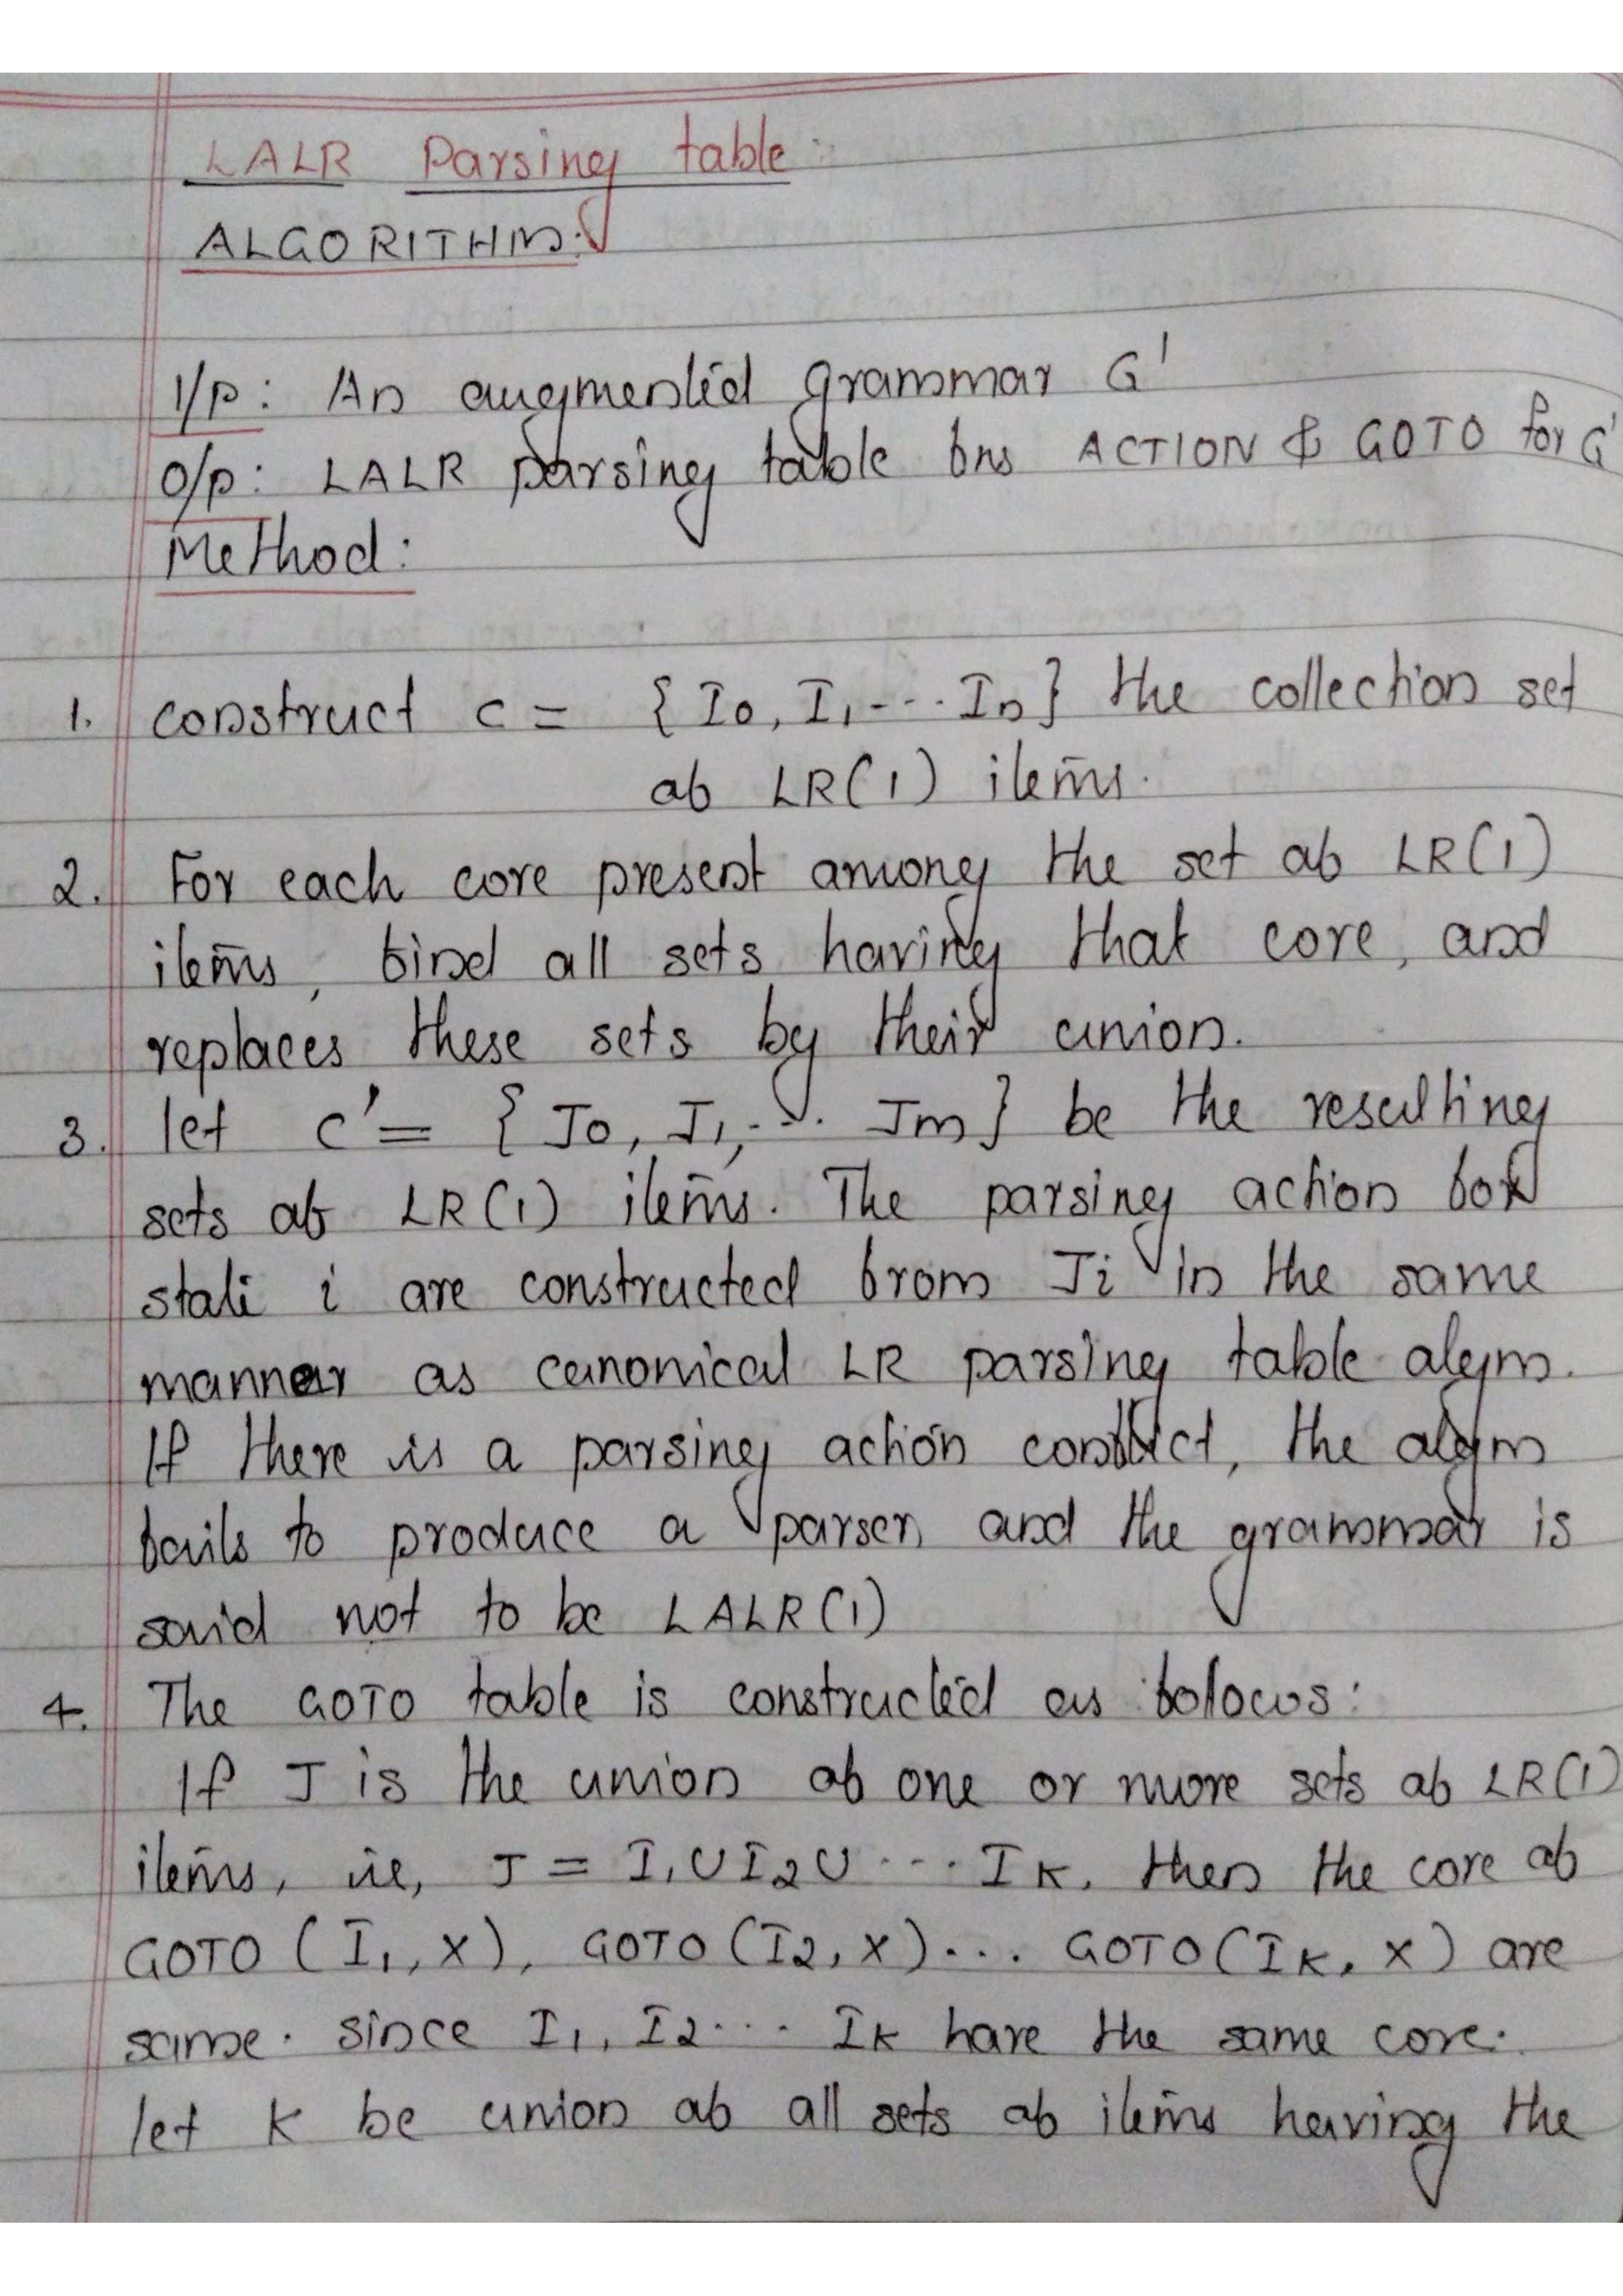 LALR Parsing table:
ALGORITHM:
I/p: An augmented grammar G'
O/p: LALR parsing table fns ACTION & GOTO for G'
Method:
1. construct C = {I0, I1, --- In} the collection set
of LR(1) items.
2. For each core present among the set of LR(1)
items, find all sets having that core, and
replaces these sets by their union.
3. let C' = {J0, J1, --- Jm} be the resulting
sets of LR(1) items. The parsing action for
state i are constructed from Ji in the same
manner as canonical LR parsing table algm.
If there is a parsing action conflict, the algm
fails to produce a parser, and the grammar is
said not to be LALR(1)
4. The GOTO table is constructed as folows:
If J is the union of one or more sets of LR(1)
items, ie, J = I1 U I2 U --- Ik, then the core of
GOTO (I1, X), GOTO (I2, X) ... GOTO (Ik, X) are
same. since I1, I2 --- Ik have the same core.
let K be union of all sets of items having the